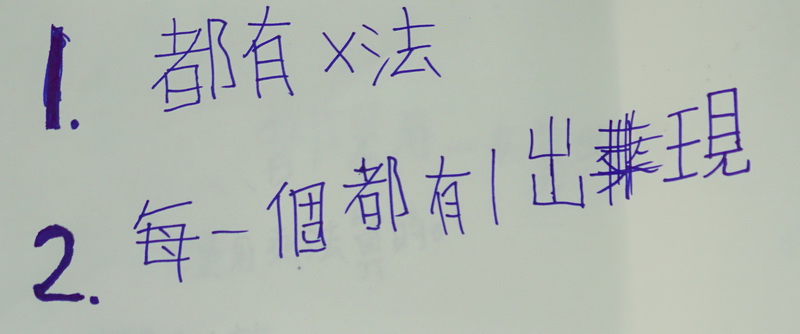 1. 都有×法
2. 每一個都有1出現